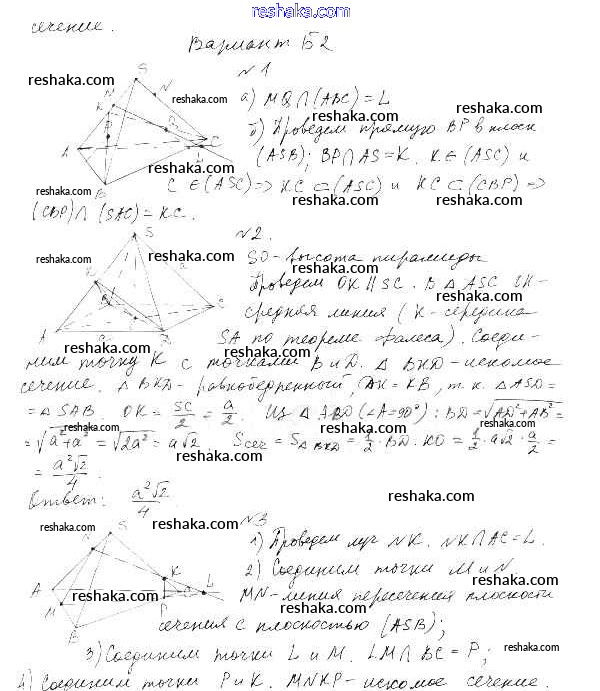 reshaka.com
сечение.
Вариант Б2
№1
а) MQ∩(ABC)=L
б) Проведем прямую BP в плоск
(ASB); BP∩AS=K. K∈(ASC) и
C∈(ASC)=>KC⊂(ASC) и KC⊂(CBP)=>
(CBP)∩(SAC)=KC.
№2.
SO-высота пирамиды
Проведем OK||SC. В △ASC OK-
средняя линия (K-середина
SA по теореме Фалеса). Соеди-
ним точку K с точками B и D. △BKD-искомое
сечение. △BKD-равнобедренный, DK=KB, т.к. △ASD=
=△SAB. OK=SC/2=a/2. Из △ABD(∠A=90°): BD=√AD²+AB²=
=√a²+a²=√2a²=a√2. Sсеч=S△BKD=1/2·BD·KO=1/2·a√2·a/2=
=a²√2/4.
Ответ: a²√2/4
№3
1) Проведем луч NK. NK∩AC=L.
2) Соединим точки M и N
MN-линия пересечения плоскости
сечения с плоскостью (ASB);
3) Соединим точки L и M. LM∩BC=P;
4) Соединим точки P и K. MNKP-искомое сечение.